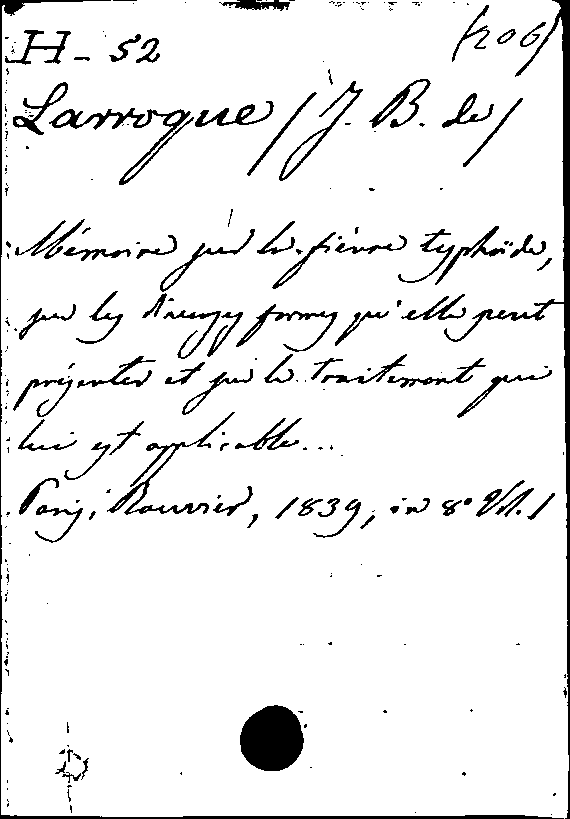 H-52 (206)
Larroque (J. B. de)
Mémoire sur la fièvre typhoïde,
sur les diverses formes qu'elle peut
présenter et sur le traitement qui
lui est applicable...
Paris, Rouvier, 1839, in 8° Vol. 1